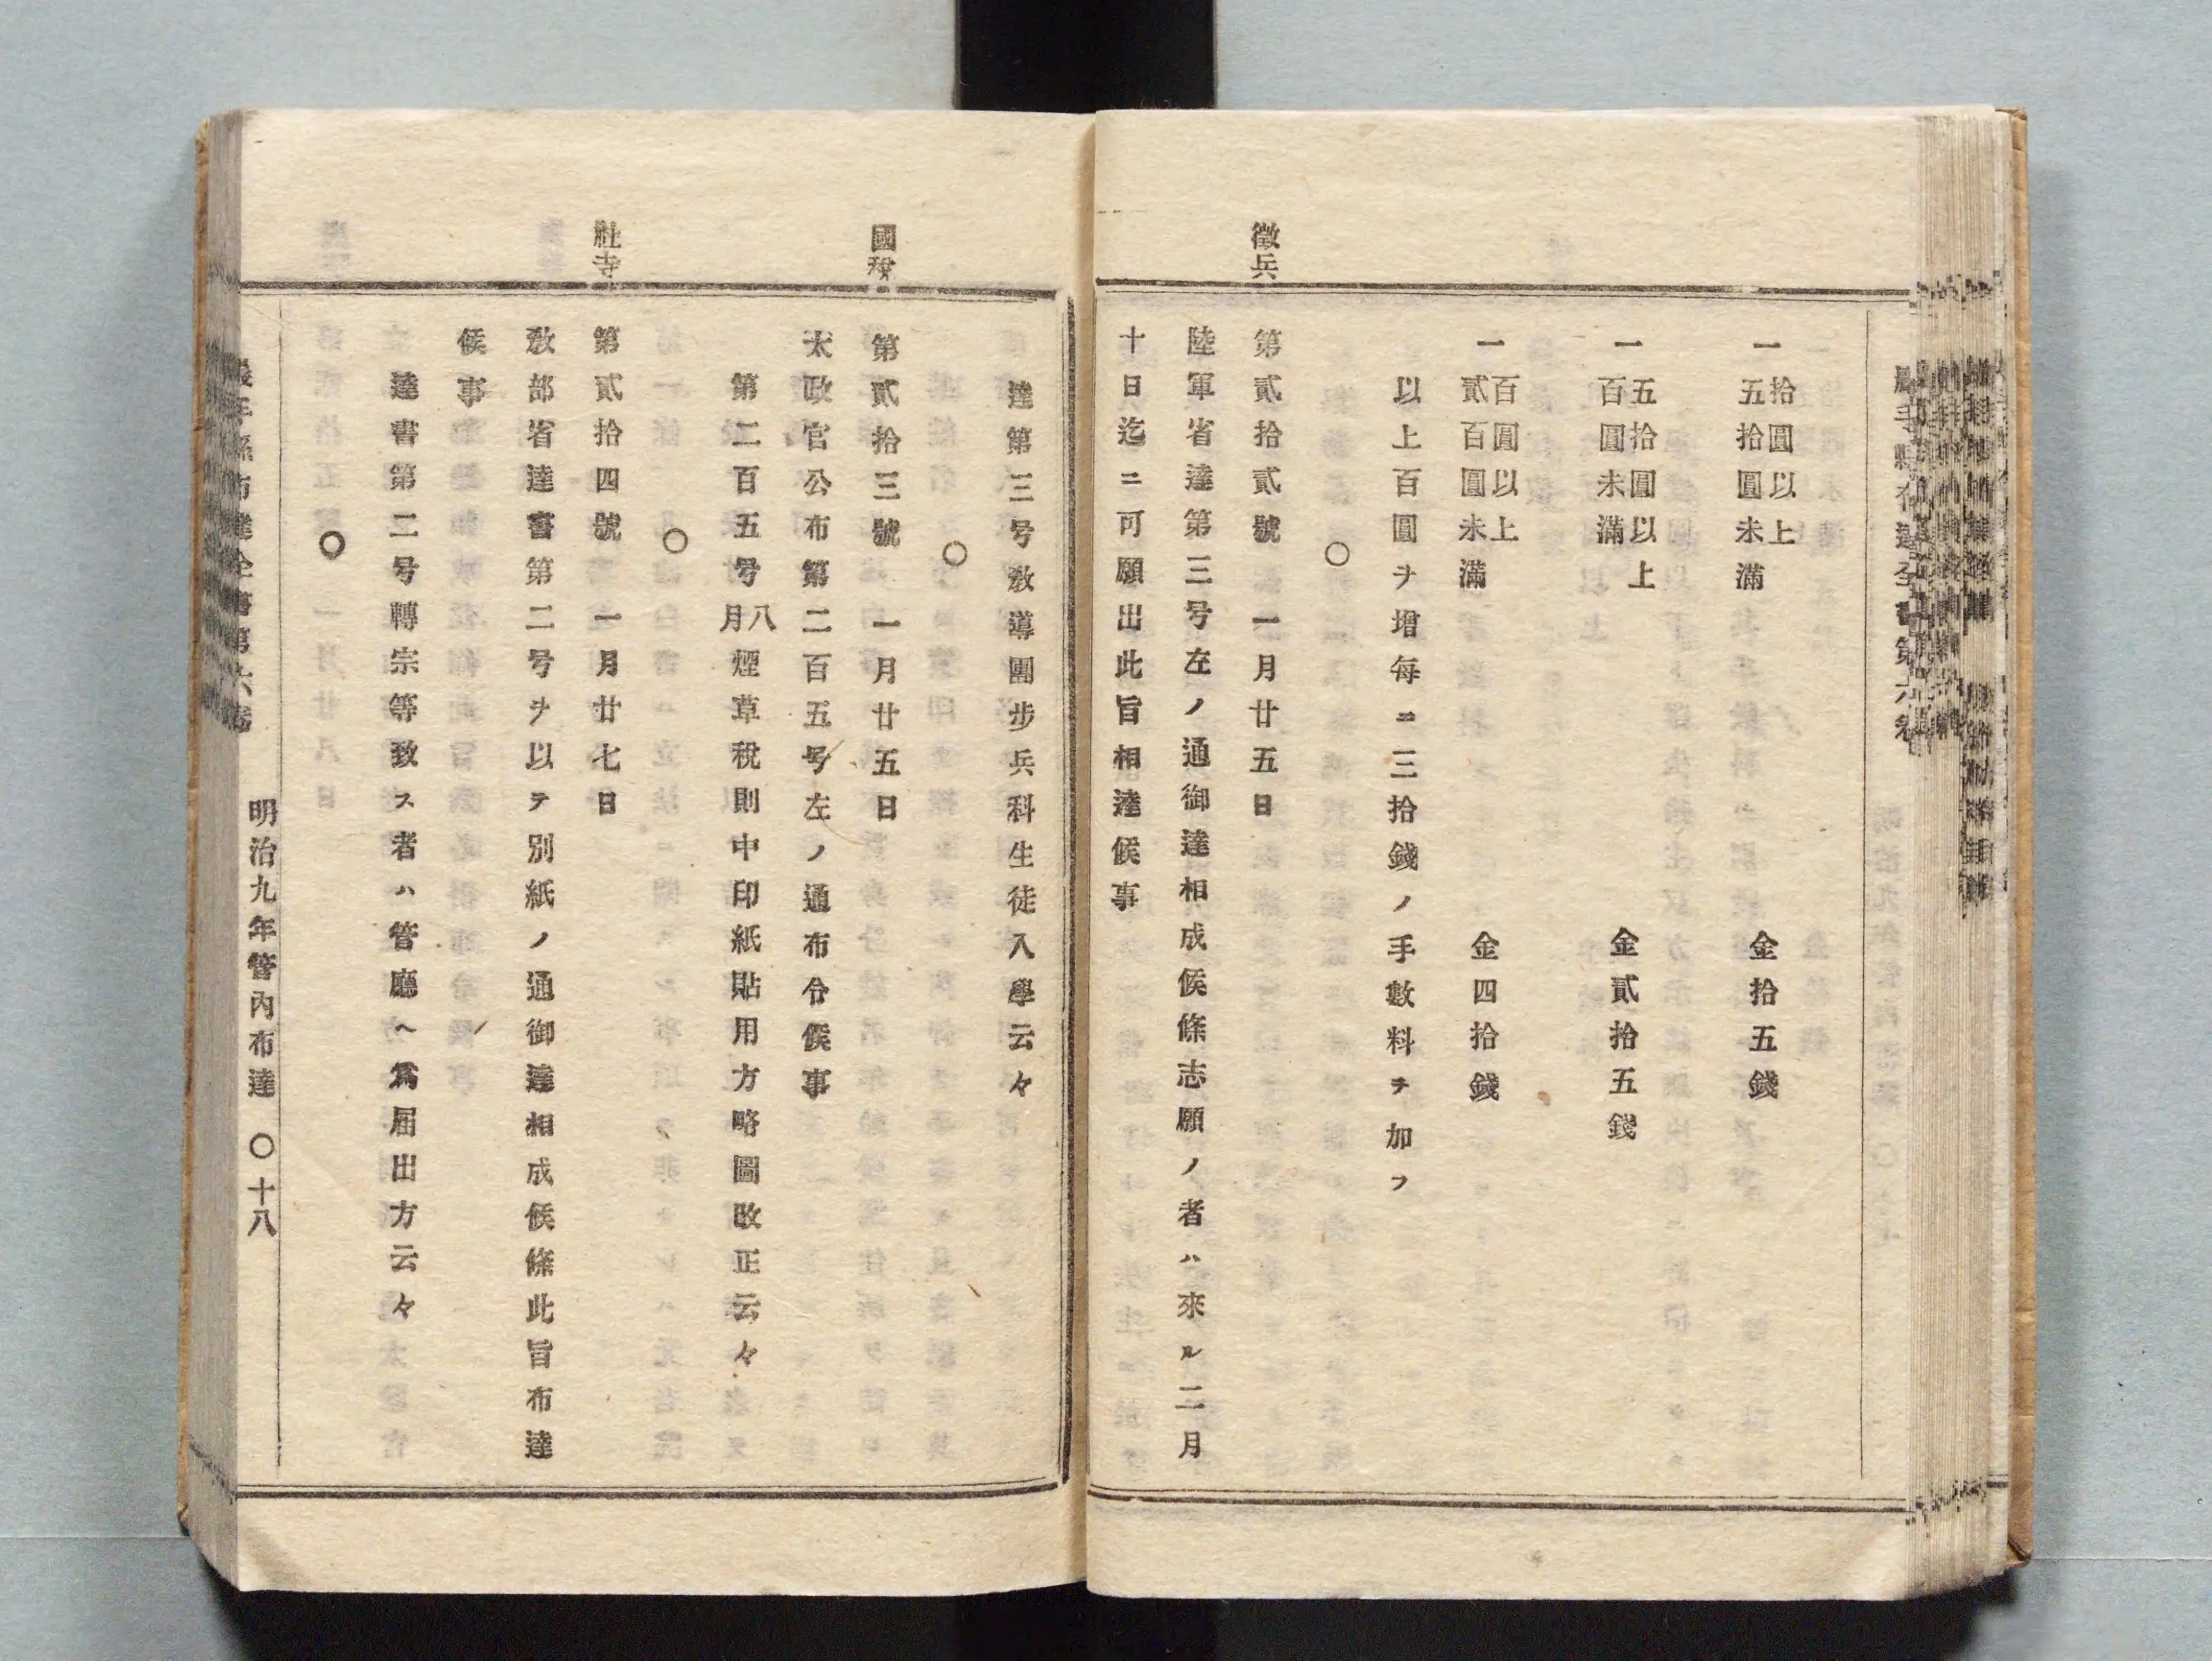 一 拾圓以上
五拾圓未滿 金拾五錢
一 五拾圓以上
百圓未滿 金貳拾五錢
一 百圓以上
貳百圓未滿 金四拾錢
以上百圓ヲ增每ニ三拾錢ノ手數料ヲ加フ
○
徵兵
第貳拾貳號 一月廿五日
陸軍省達第三号左ノ通御達相成候條志願ノ者ハ來ル二月
十日迄ニ可願出此旨相達候事
達第三号敎導團步兵科生徒入學云々
○
國稅
第貳拾三號 一月廿五日
太政官公布第二百五号左ノ通布令候事
第二百五号 八月 煙草稅則中印紙貼用方略圖改正云々
○
社寺
第貳拾四號 一月廿七日
敎部省達書第二号ヲ以テ別紙ノ通御達相成候條此旨布達
候事
達書第二号轉宗等致ス者ハ管廳ヘ爲屆出方云々
○
明治九年管內布達 ○十八